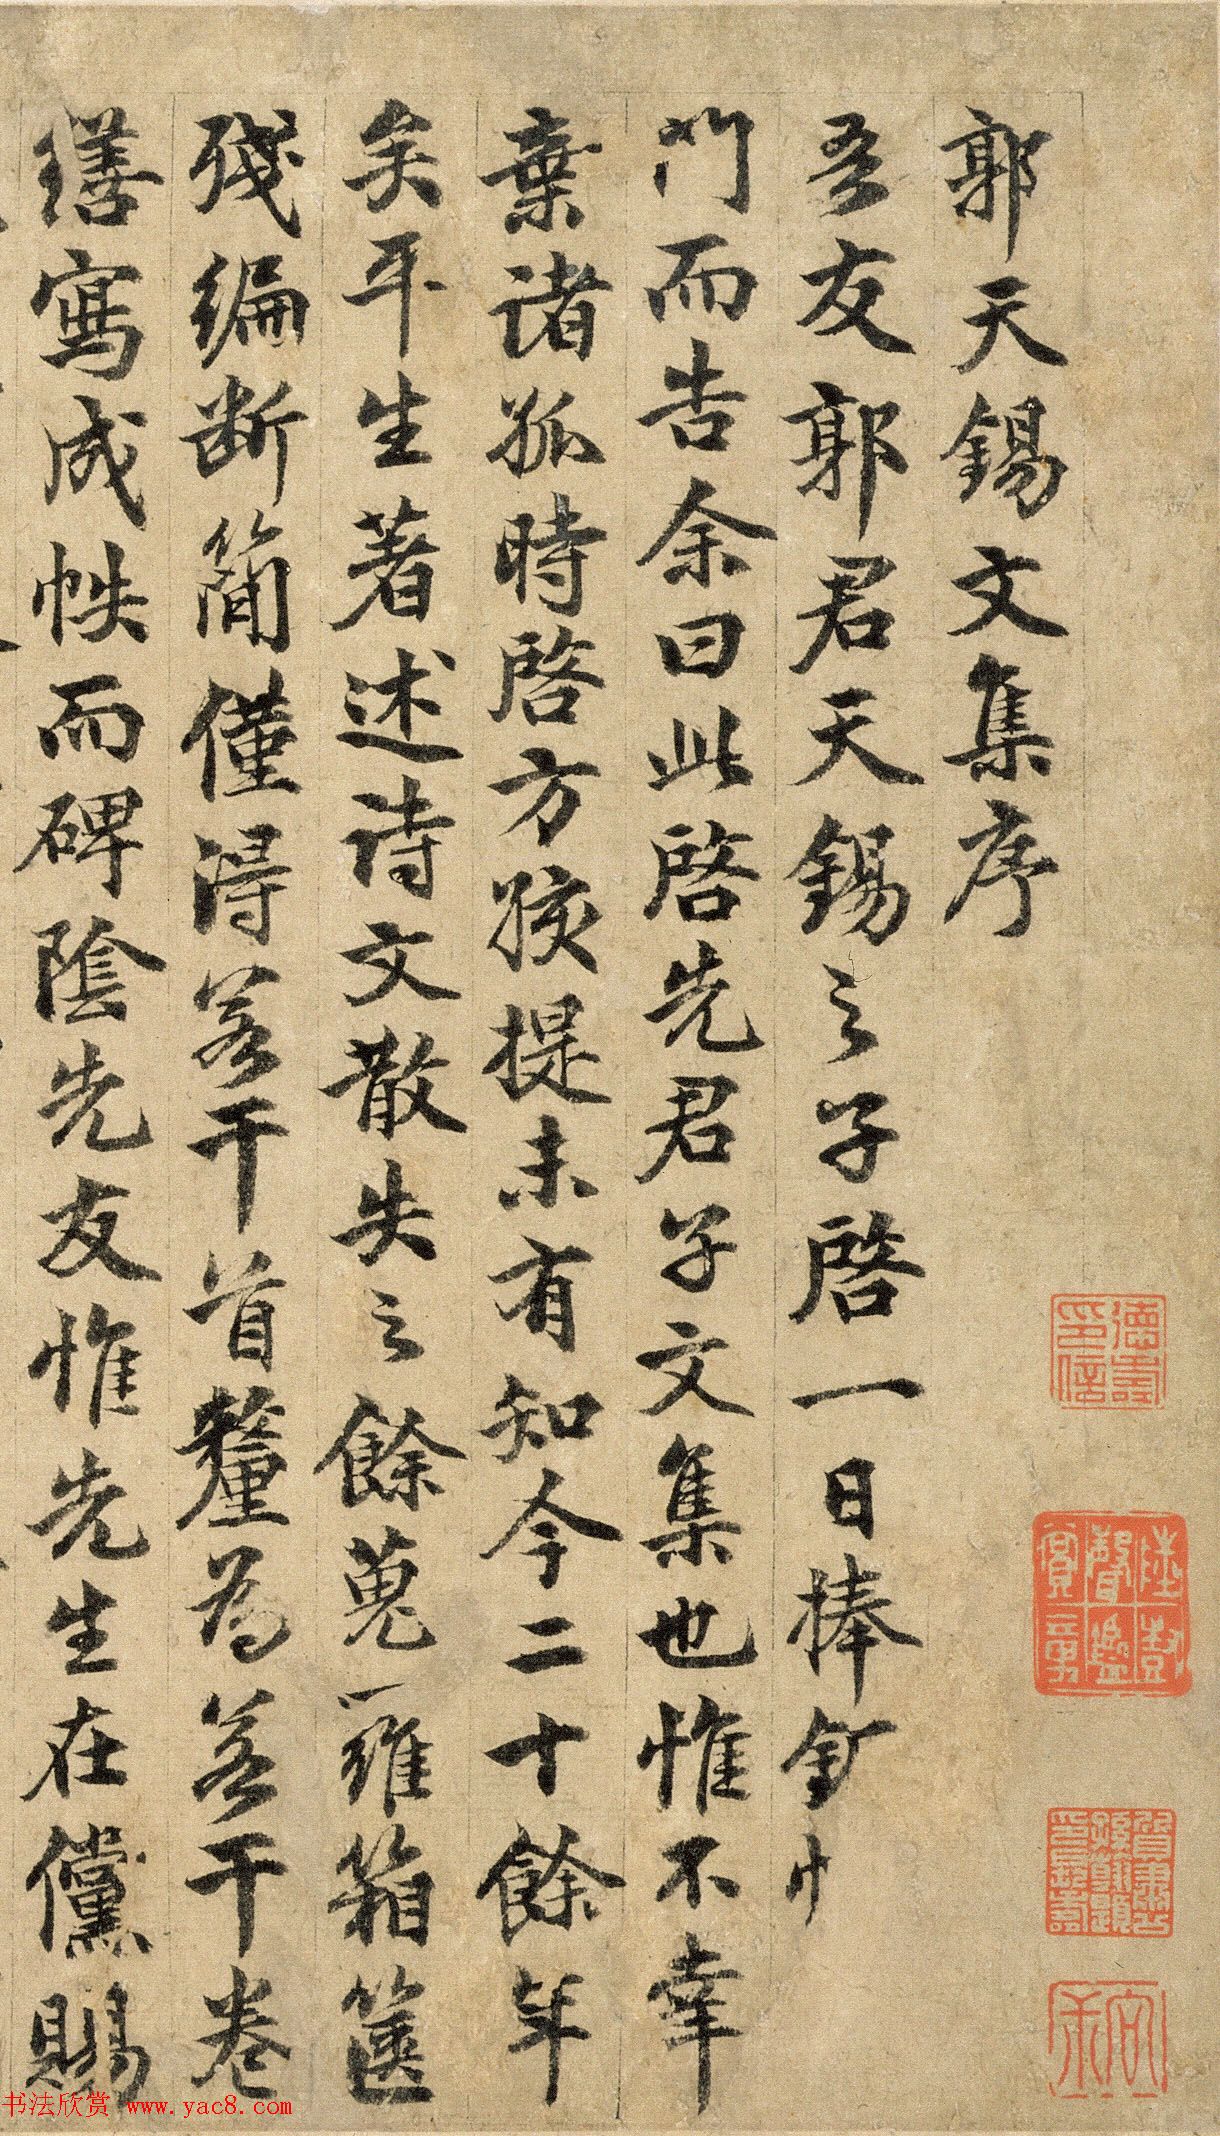 郭天錫文集序
吾友郭君天錫之子啓一日捧
門而告余曰此啓先君子文集也惟不幸
棄諸孤時啓方孩提未有知今二十餘年
矣平生著述詩文散失之餘蒐羅箱篋
殘編斷簡僅得若干首釐為若干卷
繕寫成帙而碑陰先友惟先生在儻賜
德壽印信
陸樹聲鑒賞章
书法欣赏 www.yac8.com